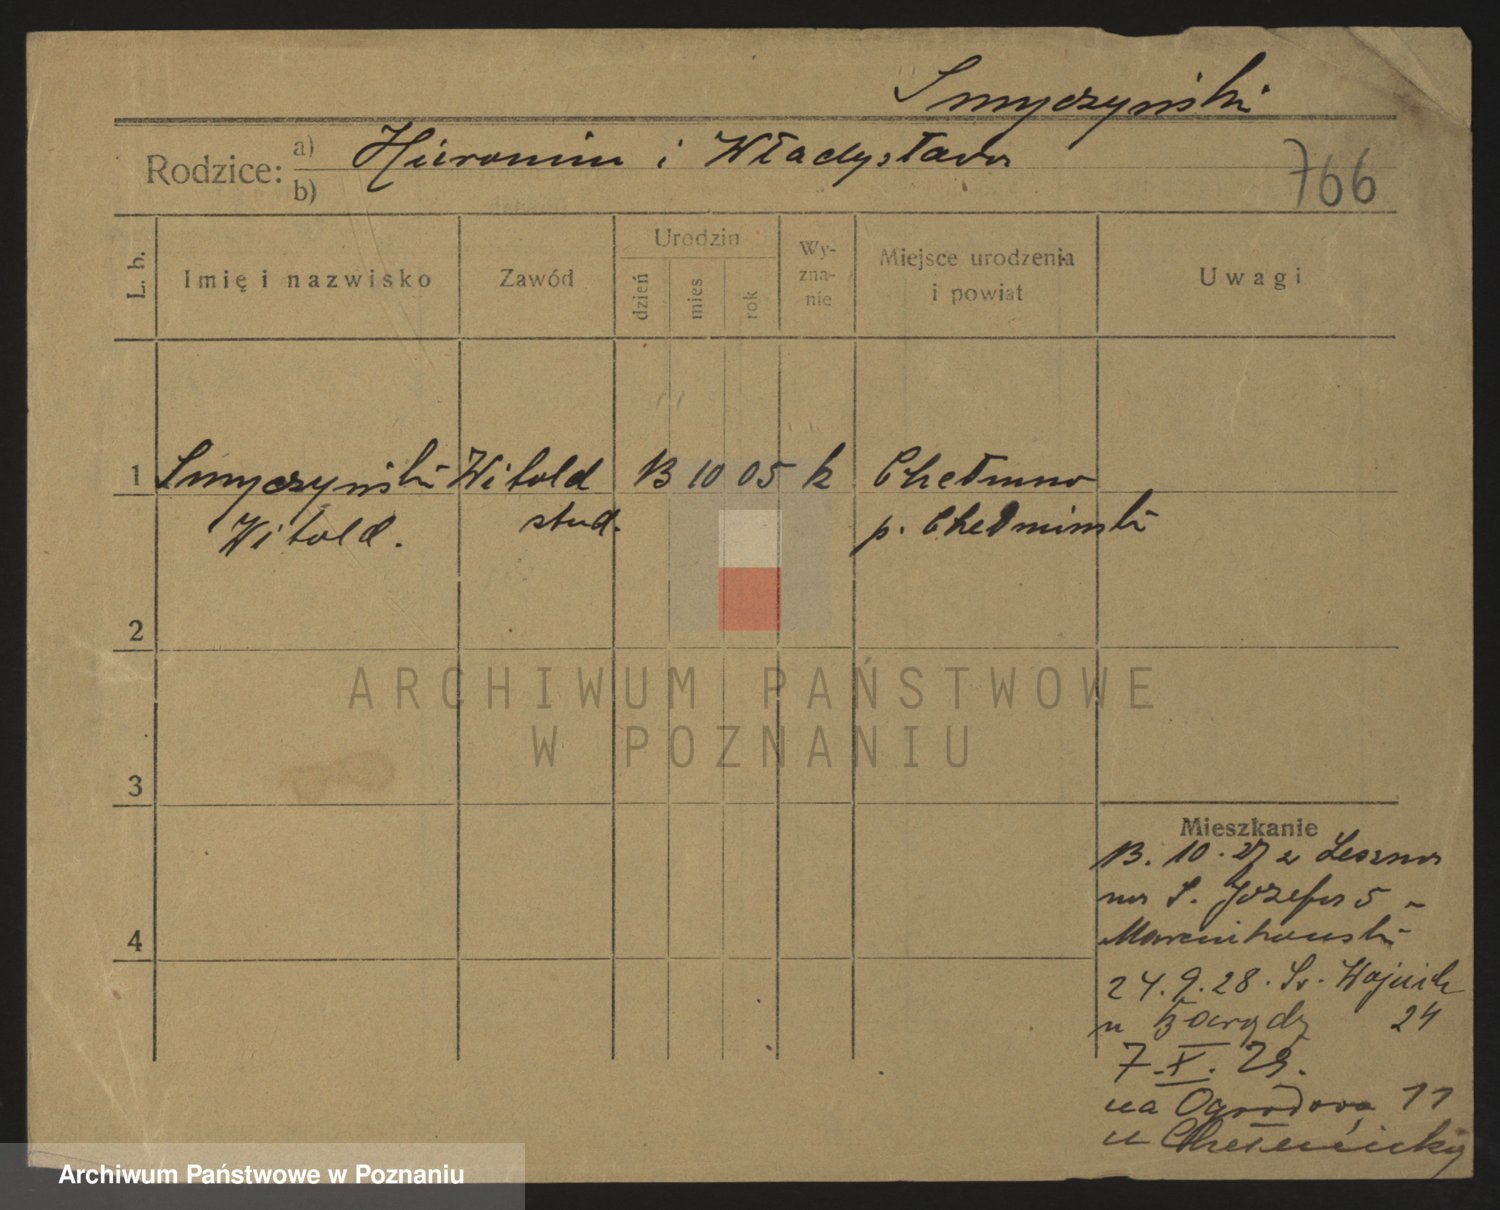 Smyczyński
Rodzice: a) Hieronim i Władysława
b)
766
L. b.
Imię i nazwisko
Zawód
Urodzin
dzień
mies.
rok
Wy-
zna-
nie
Miejsce urodzenia
i powiat
Uwagi
1 Smyczyński Witold 13 10 05 k Chełmno
Witold. stud. p. Chełmiński
2
3
4
ARCHIWUM PAŃSTWOWE
W POZNANIU
Mieszkanie
13. 10. 27 z Leszna
na S. Józefa 5
Marcinkowski
24. 9. 28. Św. Wojciech
u 24
7. X. 29.
na Ogrodową 11
u
Archiwum Państwowe w Poznaniu